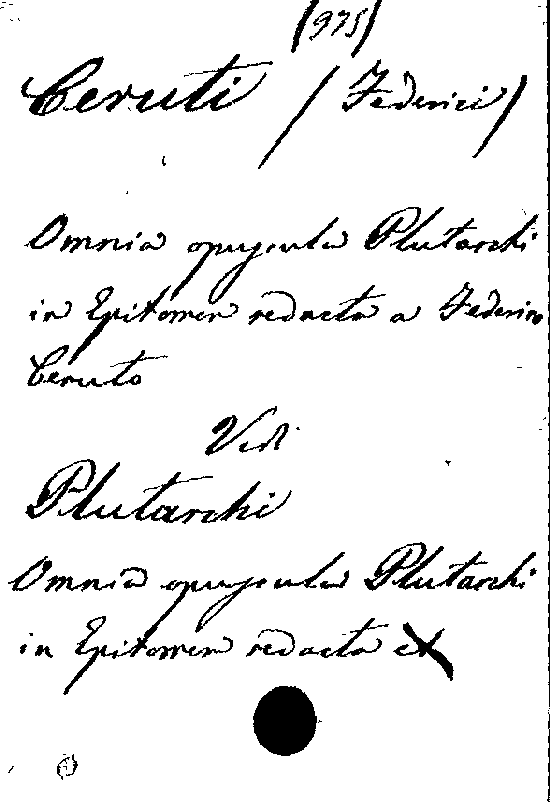 (975)
Ceruti (Federici)
Omnia opuscula Plutarchi
in Epitomen redacta a Federico
Ceruto
Vedi
Plutarchi
Omnia opuscula Plutarchi
in Epitomen redacta